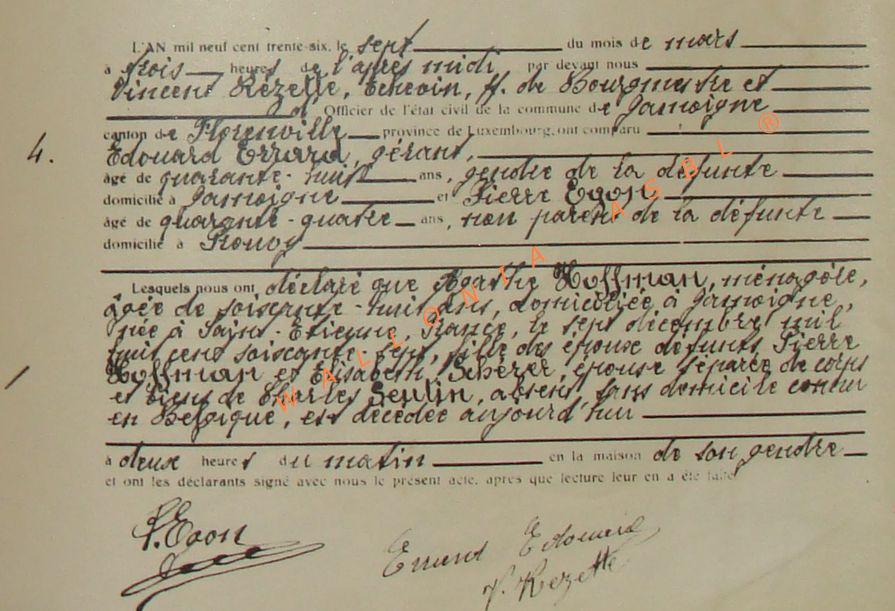 L'AN mil neuf cent trente-six, le sept du mois de mars
à trois heures de l'après midi par devant nous
Vincent Rézette, Echevin, ff. de Bourgmestre et
Officier de l'état civil de la commune de Jamoigne
canton de Florenville province de Luxembourg, ont comparu
4. Edouard Errard, gérant,
âgé de quarante-huit ans, gendre de la défunte
domicilié à Jamoigne et Pierre Evon
âgé de quarante-quatre ans, non parent de la défunte
domicilié à Prouvy
Lesquels nous ont déclaré que Agathe Hoffman, ménagère,
âgée de soixante-huit ans, domiciliée à Jamoigne,
née à Saint-Etienne, France, le sept décembre mil
huit cent soixante sept, fille des époux défunts Pierre
Hoffman et Elisabeth Schérer, épouse séparée de corps
et biens de Charles Sentin, absent, sans domicile connu
en Belgique, est décédée aujourd'hui
à deux heures du matin en la maison de son gendre
et ont les déclarants signé avec nous le présent acte, après que lecture leur en a été faite
P. Evon
Errard Edouard
V. Rezette
WALLONIA ASBL ®